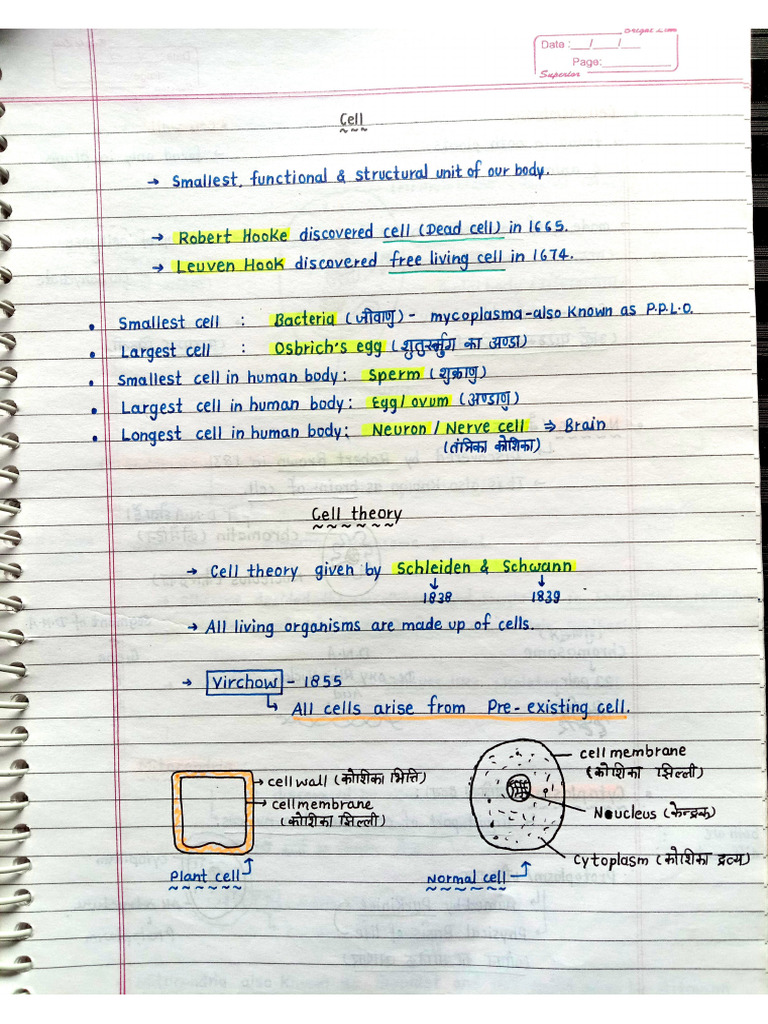 Bright Line
Date :___/___/___
Page:___________
Superior
Cell
→ Smallest, functional & structural unit of our body.
→ Robert Hooke discovered cell (Dead cell) in 1665.
→ Leuven Hook discovered free living cell in 1674.
• Smallest cell : Bacteria (जीवाणु) - mycoplasma-also known as P.P.L.O.
• Largest cell : Osbrich's egg (शुतुरमुर्ग का अण्डा)
• Smallest cell in human body: Sperm (शुक्राणु)
• Largest cell in human body: Egg/ovum (अण्डाणु)
• Longest cell in human body: Neuron / Nerve cell ⇒ Brain
(तंत्रिका कोशिका)
Cell theory
→ Cell theory given by Schleiden & Schwann
↓ ↓
1838 1839
→ All living organisms are made up of cells.
→ Virchow - 1855
↳ All cells arise from Pre-existing cell.
→ cell wall (कोशिका भित्ति)
→ cell membrane
(कोशिका झिल्ली)
Plant cell
cell membrane
(कोशिका झिल्ली)
Noucleus (केन्द्रक)
Cytoplasm (कोशिका द्रव्य)
Normal cell